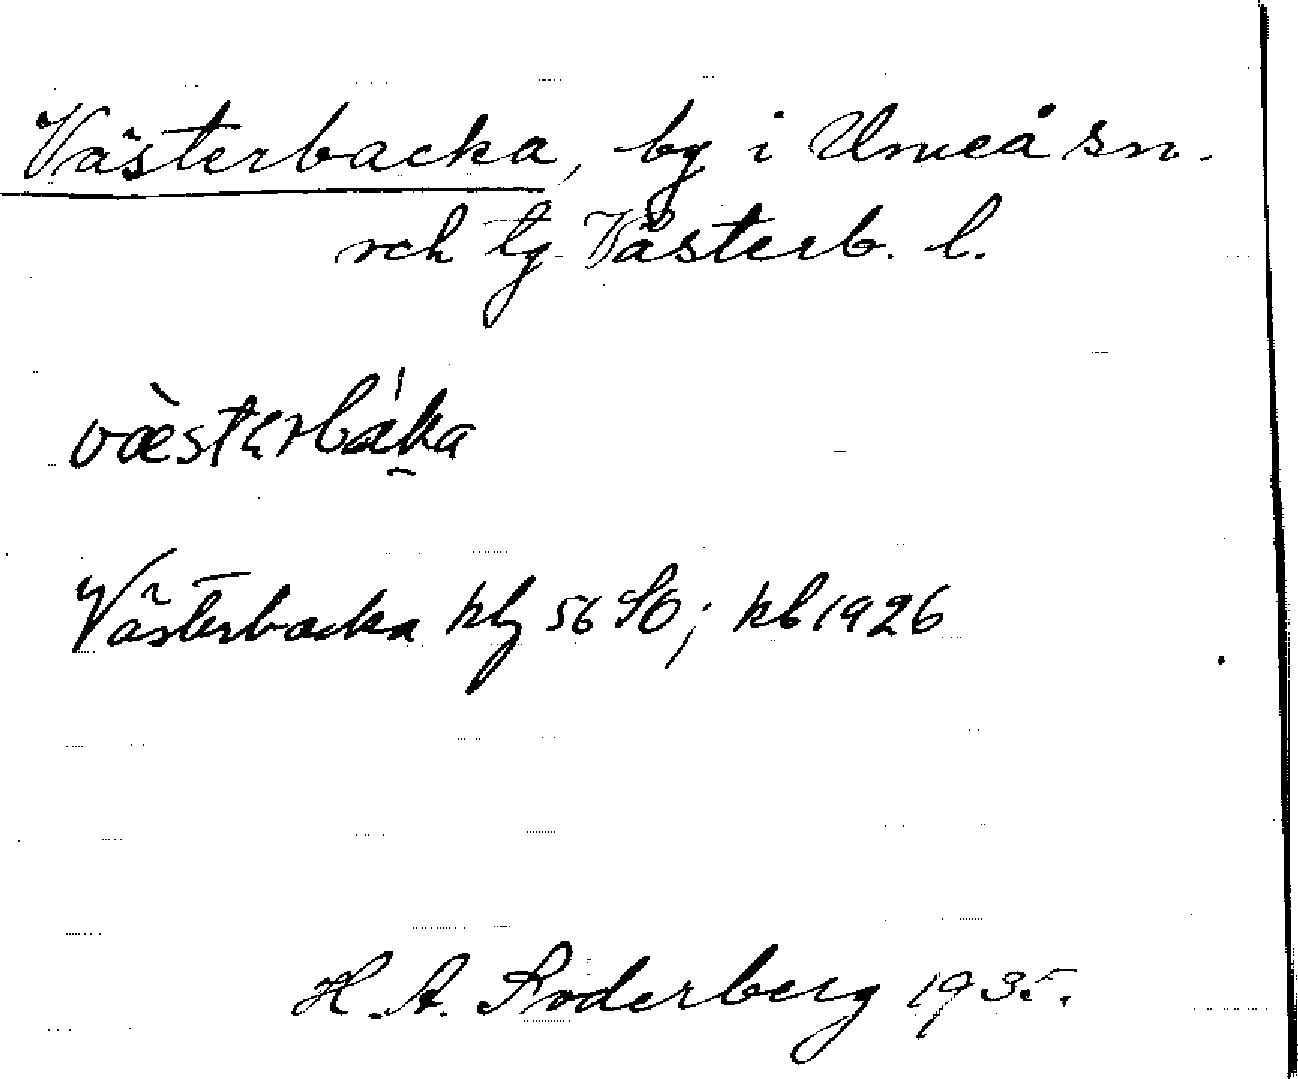 Västerbacka, by i Umeå sn.
och tg Västerb. l.
væ̀stərbáka
Västerbacka klg 56 SO; kb 1926
H. A. Söderberg 1935.